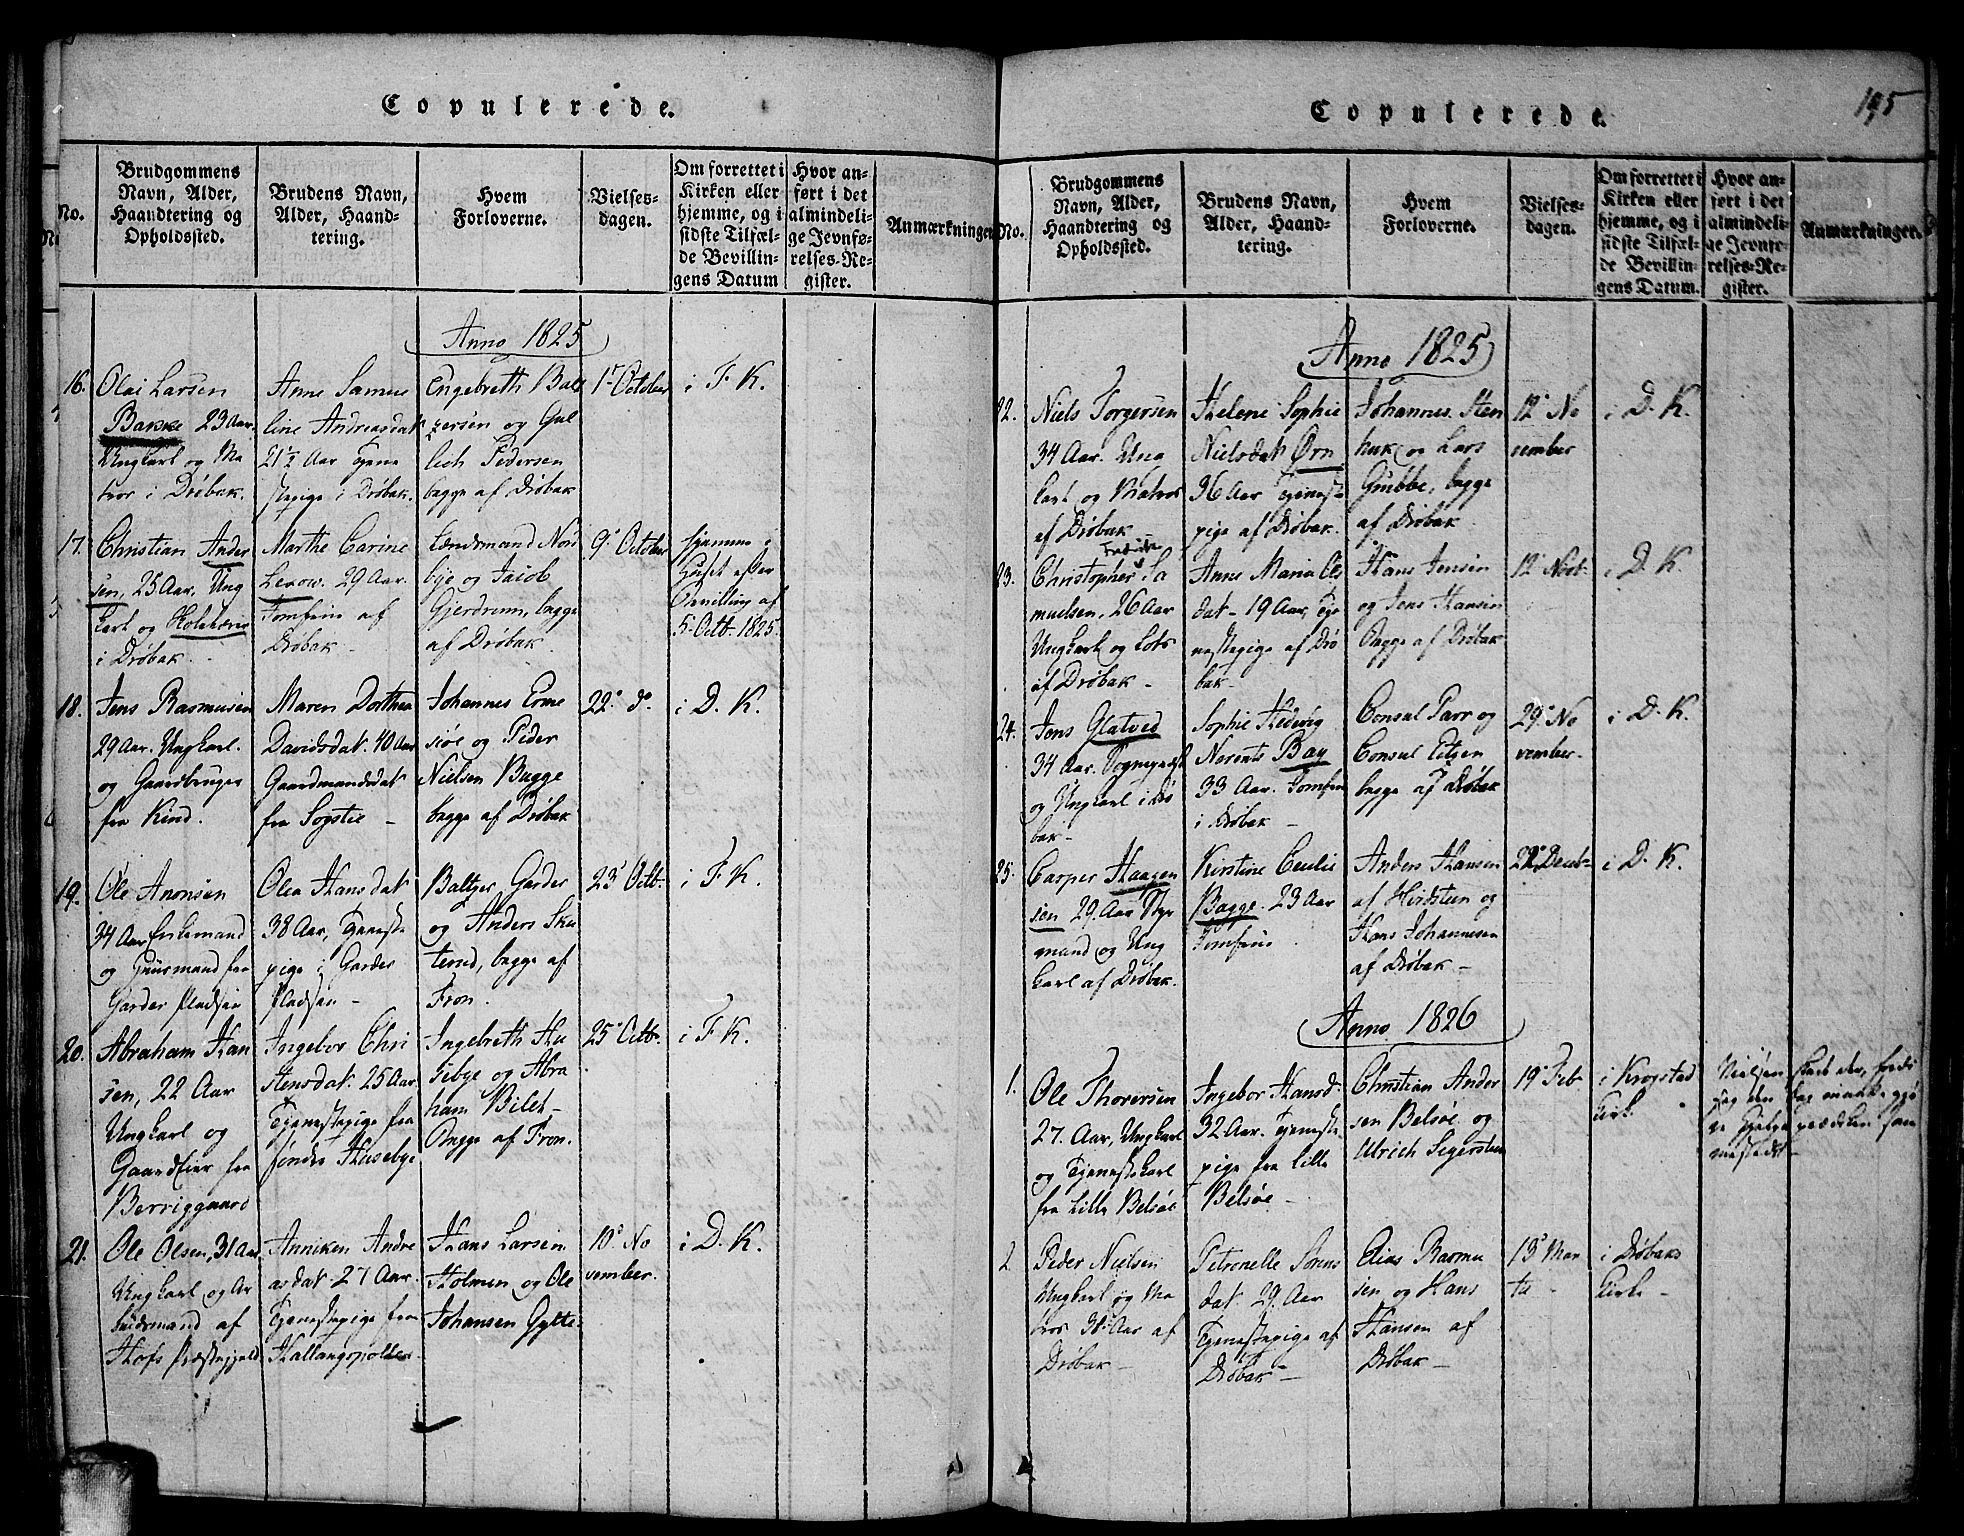 Copulerede.
No.
Brudgommens
Navn, Alder,
Haandtering og
Opholdssted.
Brudens Navn,
Alder, Haand-
tering.
Hvem
Forloverne.
Vielses-
dagen.
Om forrettet i
Kirken eller
hjemme, og i
sidste Tilfæl-
de Bevillin-
gens Datum
Hvor an-
ført i det
almindeli-
ge Jevnfø-
relses-Re-
gister.
Anmærkninger
Anno 1825
16.
Olai Larsen
Bakke 23 Aar.
Ungkarl og Ma
tros i Drøbak.
Anne Samue
line Andreasdat
21½ Aar Tjene
stepige i Drøbak.
Engebreth Balt
zersen og Gul
lich Pedersen
begge af Drøbak
1ste October
i F. K.
17.
Christian Ander
sen, 25 Aar. Ung
karl og
i Drøbak.
Marthe Carine
Lerow. 29 Aar.
Jomfrue af
Drøbak.
Lensmand Nord
bye og Jacob
Gjerdrum, begge
af Drøbak
9de October
hjemme i
Huset efter
Bevilling af
5. Octb. 1825.
18.
Jens Rasmusen
29 Aar. Ungkarl.
og Gaardbruger
fra Kind.
Maren Dorthea
Davidsdat. 40 Aar
Gaardmandsdat
fra Sogstie -
Johannes Erme
søe og Peder
Nielsen Bagge
begge af Drøbak
22de do
i D. K.
19.
Ole Aronsen
34 Aar Enkemand
og Huusmand fra
Garder Pladsen
Olea Hansdat
38 Aar, Tjeneste
pige i Garder
Pladsen -
Baltzer Garder
og Anders Sku
terud, begge af
Fron.
23de Octb.
i F. K.
20.
Abraham Han
sen, 22 Aar
Ungkarl og
Gaardeier fra
Berriggaard
Ingebor Chri
stensdat. 25 Aar.
Tjenestepige fra
søndre Husebye
Ingebreth Hu
sebye og Abra
ham Bilet -
Begge af Fron.
25de Octb.
i F. K.
21.
Ole Olsen, 31 Aar.
Ungkarl og Ar
beidsmand af
Hofs Præstegjeld
Anniken Andre
asdat. 27 Aar.
Tjenestepige fra
Hallangspollen.
Hans Larsen
Holmen og Ole
Johansen Gylte.
10de No
vember.
i D. K.
Copulerede.
195
No.
Brudgommens
Navn, Alder,
Haandtering og
Opholdssted.
Brudens Navn,
Alder, Haand-
tering.
Hvem
Forloverne.
Vielses-
dagen.
Om forrettet i
Kirken eller
hjemme, og i
sidste Tilfæl-
de Bevillin-
gens Datum.
Hvor an-
ført i det
almindeli-
ge Jevnfø-
relses-Re-
gister.
Anmærkninger.
Anno 1825
22.
Niels Torgersen
34 Aar. Ung
karl og Matros
af Drøbak
Helene Sophie
Nielsdat Ørn
36 Aar Tjeneste
pige af Drøbak.
Johannes Sten
huk og Lars
Grubbe, begge
af Drøbak.
12te No
vember
i D. K.
23.
Christopher Sa
muelsen. 26 Aar
Ungkarl og Lots
af Drøbak -
Anne Maria Ols
dat - 19 Aar, Tje
nestepige af Drø
bak.
Hans Jensen
og Jens Hansen
Begge af Drøbak
12te Novb.
i D. K.
24.
Jens Glatved
34 Aar. Sogneprest
og Ungkarl i Drø
bak -
Sophie Hedevig
Norents Bay
33 Aar. Jomfrue
i Drøbak -
Consul Parr og
Consul Ditzen
begge af Drøbak
29de No
vember.
i D. K.
25.
Casper Haagen
sen 29 Aar Styr
mand og Ung
karl af Drøbak.
Kirstine Cecilie
Bagge. 23 Aar
Jomfrue
Anders Hansen
af Hvidsteen og
Hans Johannesen
af Drøbak -
29de Decb.
i D. K.
Anno 1826
1.
Ole Thorersen
27. Aar, Ungkarl
og Tjenestekarl
fra Lille Belsøe
Ingebor Hansd.
32 Aar. Tjeneste
pige fra Lille
Belsøe -
Christian Ander
sen Belsøe og
Ulrich Segersteen
19de Feb
i Krogstad
Kirke
2
Peder Nielsen
Ungkarl og Ma
tros 31 Aar af
Drøbak -
Petronelle Sørens
dat. 29. Aar
Tjenestepige af
Drøbak -
Elias Rasmu
sen og Hans
Hansen af
Drøbak -
13de Mar
ts -
i Drøbaks
Kirke -